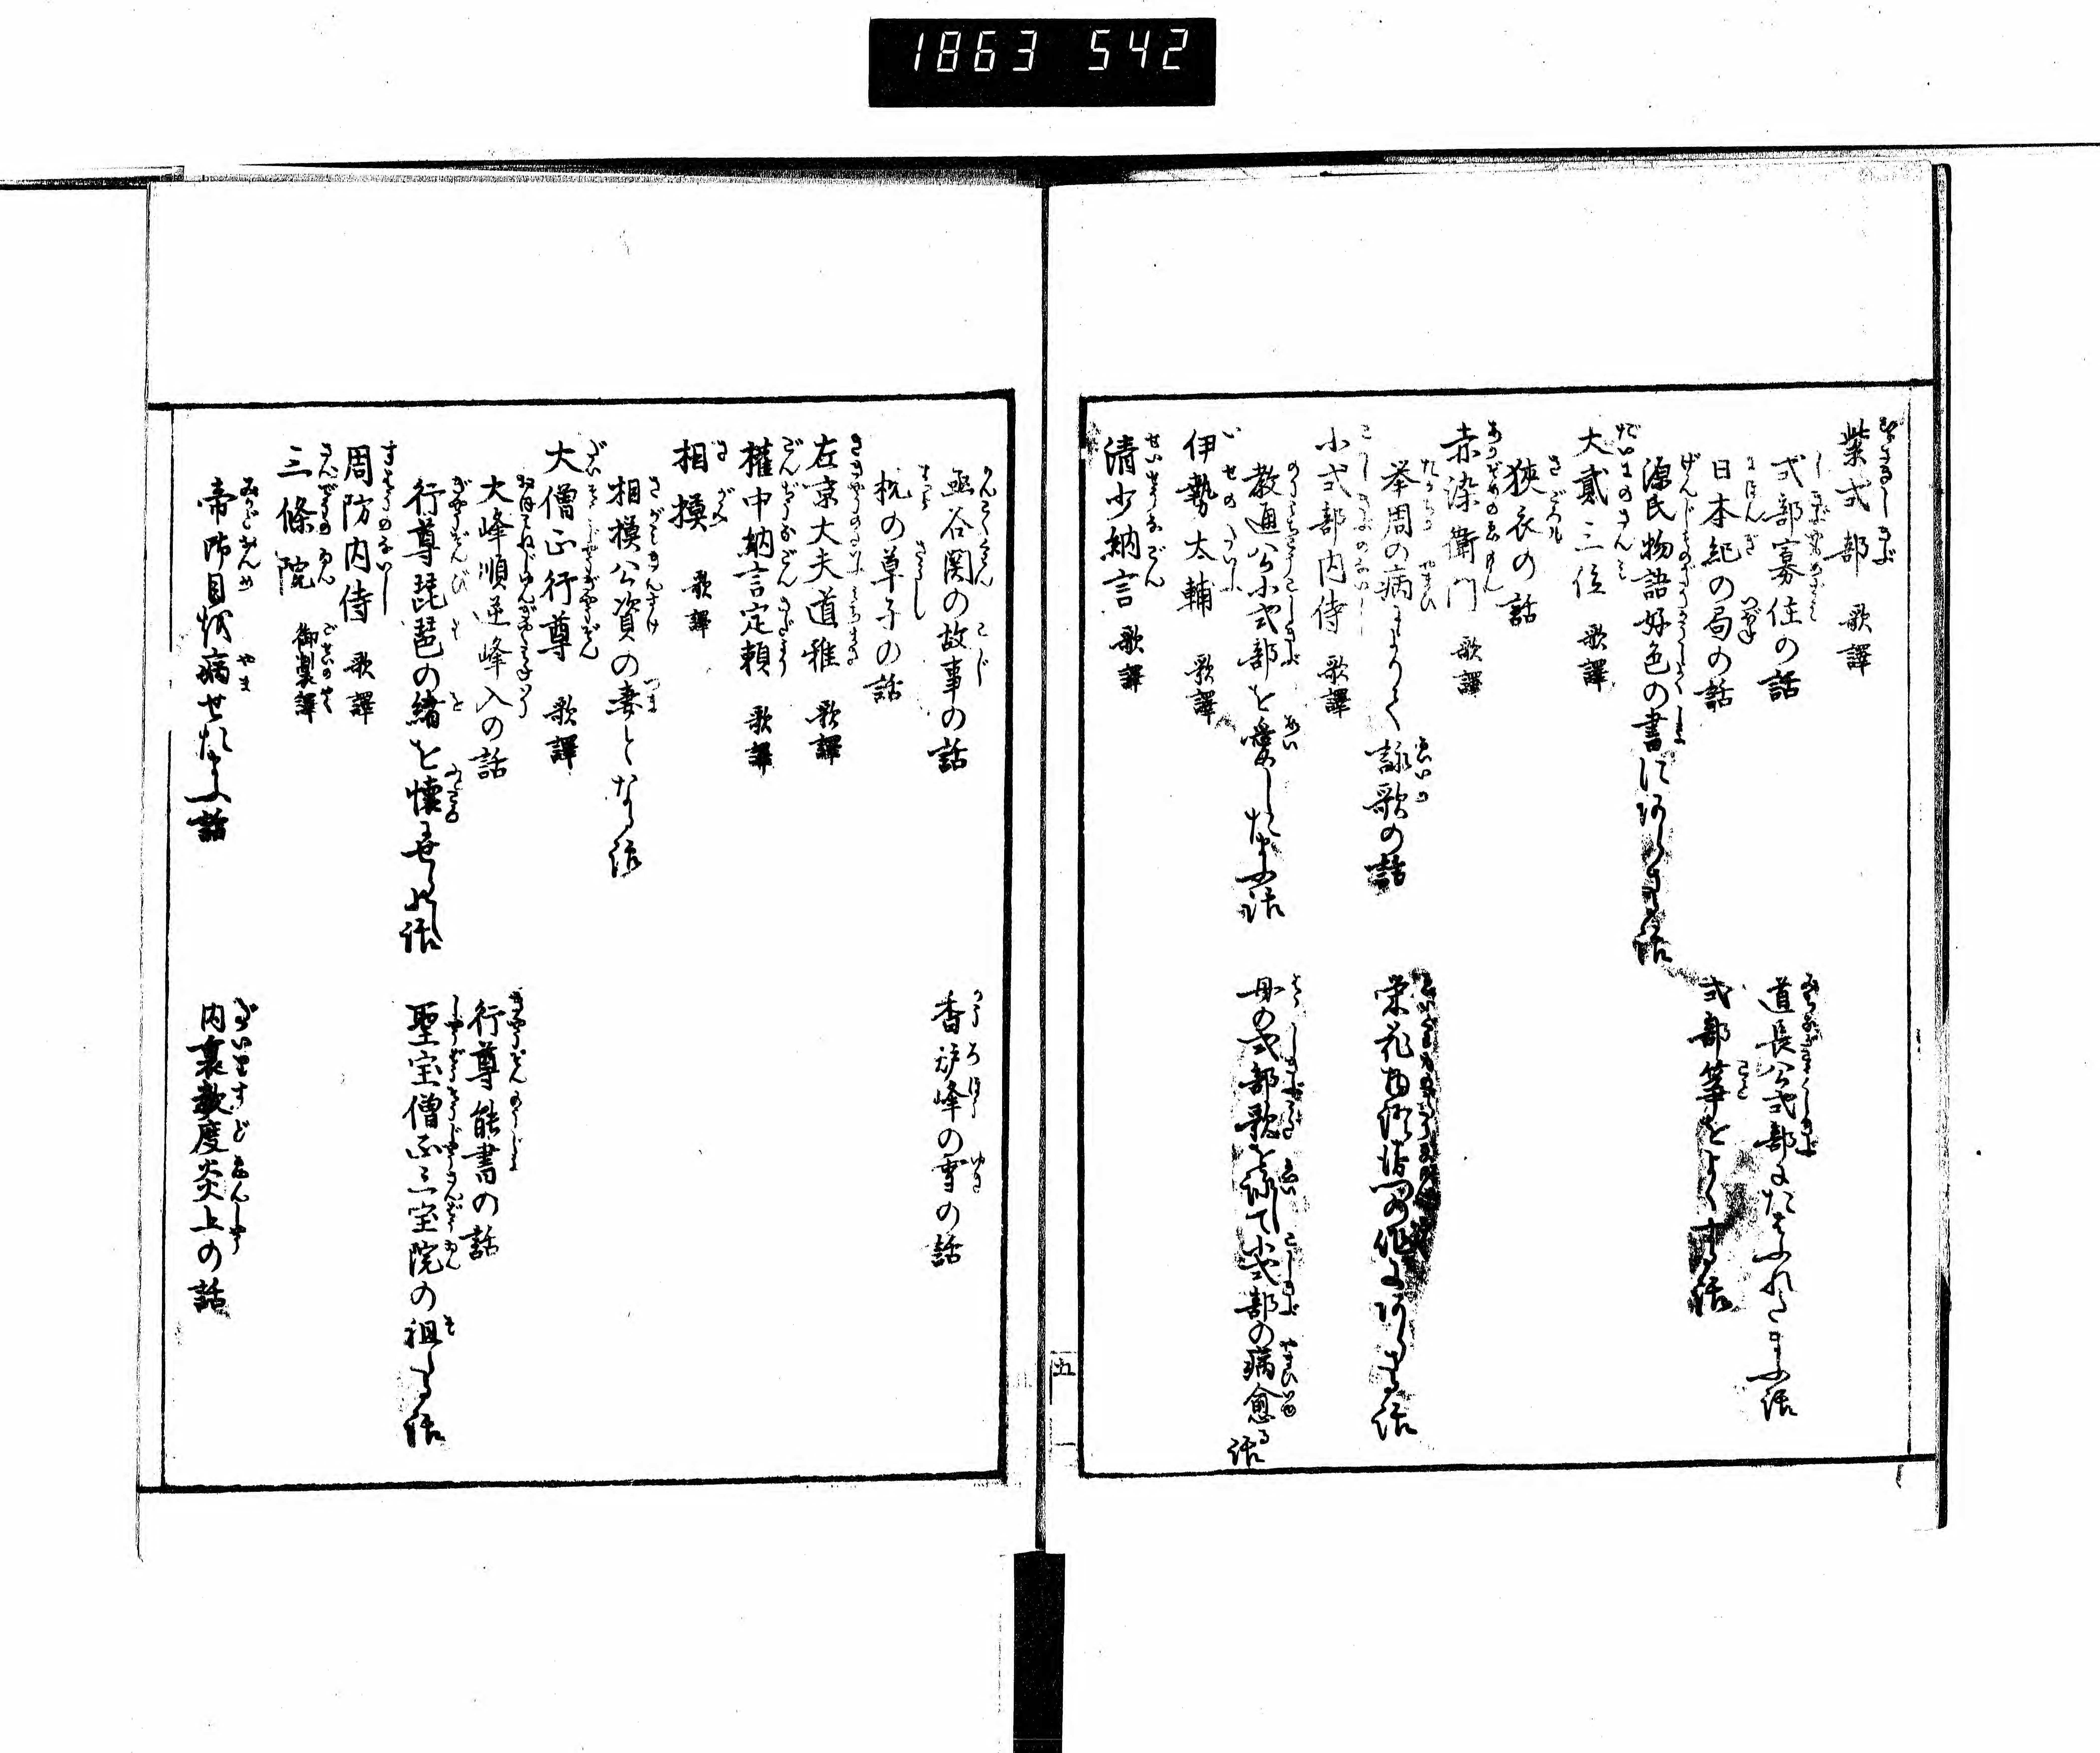 1863 542
紫式部 歌譯
式部寡住の話
道長公式部にたはふれたまふ話
日本紀の局の話
式部箏をよくする話
源氏物語好色の書にあらさる話
大貳三位 歌譯
狹衣の話
赤染衛門 歌譯
挙周の病によりて詠歌の話
栄花物語皆門の作にあらさる話
小式部内侍 歌譯
教通公小式部を愛したまふ話
母の式部歌を詠て小式部の病愈る話
伊勢太輔 歌譯
清少納言 歌譯
五
函谷関の故事の話
香炉峰の雪の話
枕の草子の話
左京大夫道雅 歌譯
權中納言定頼 歌譯
相摸 歌譯
相模公資の妻となる話
大僧正行尊 歌譯
大峰順逆峰入の話
行尊能書の話
行尊琵琶の緒を懐にせらるゝ話
聖宝僧正三宝院の祖たる話
周防内侍 歌譯
三條院 御製譯
帝御目を病せたまふ話
内裏数度炎上の話